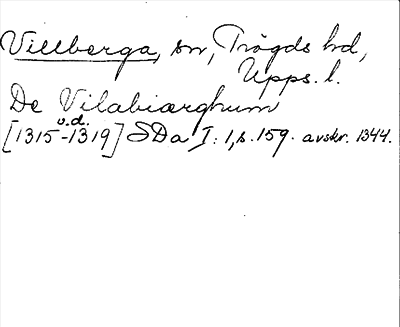 Villberga, sn, Trögds hd,
Upps. l.
De Vilabiærghum
u.d.
[1315-1319] SDa I: 1, s. 159. avskr. 1344.